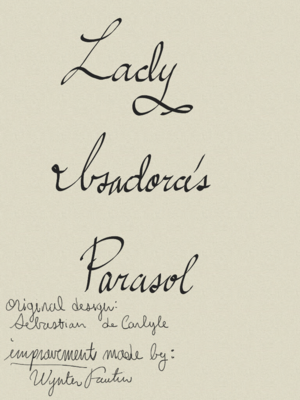 Lady
Isadora's
Parasol
original design:
Sebastian de Carlyle
improvement made by:
Wynter